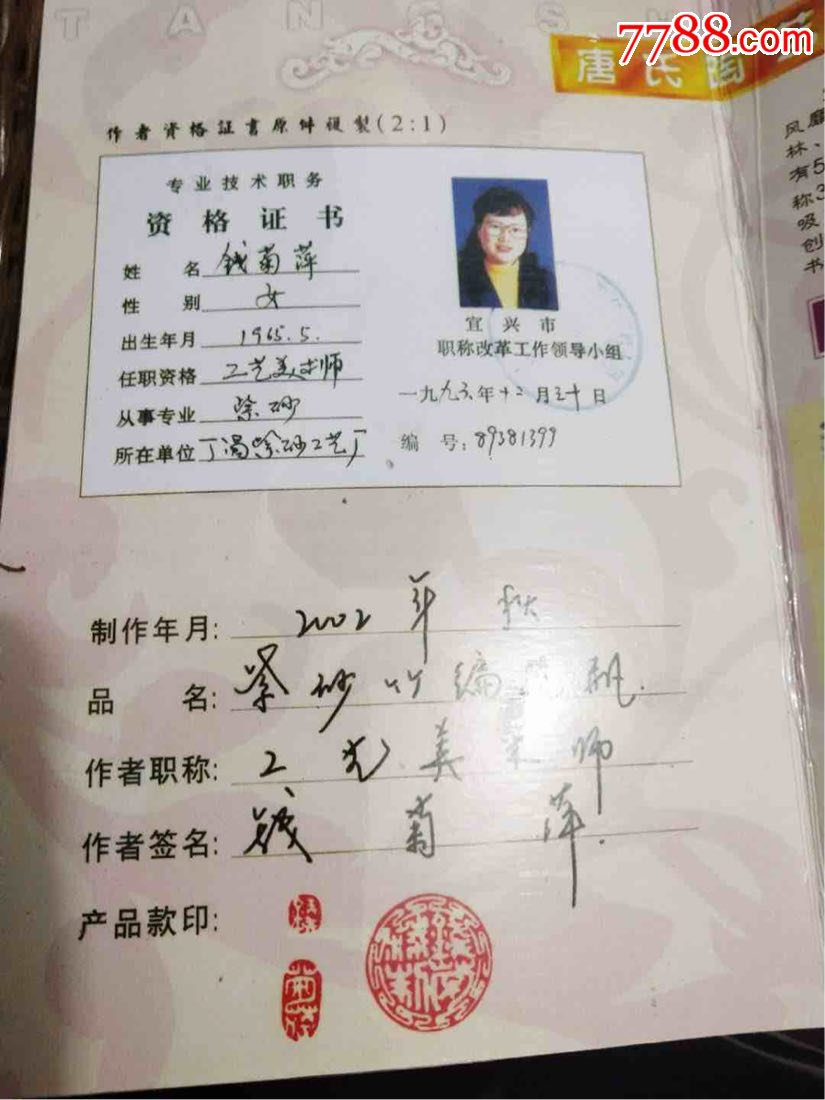 TANGS
7788.com
唐氏陶
作者資格証書原件複製(2:1)
专业技术职务
资格证书
姓名 钱菊萍
性别 女
出生年月 1965.5.
任职资格 工艺美术师
从事专业 紫砂
所在单位 丁蜀紫砂工艺厂
宜兴市
职称改革工作领导小组
一九九六年十二月三十日
编号:89381399
风
林、
有5
称3
吸
创
书
制作年月: 2002年 秋
品名: 紫砂竹编
作者职称: 工艺美术师
作者签名: 钱菊萍
产品款印: